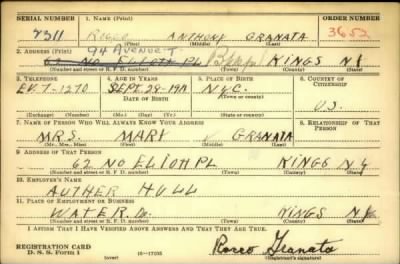 SERIAL NUMBER 1. NAME (Print) ORDER NUMBER
ROCCO ANTHONY GRANATA 3652
(First) (Middle) (Last)
94 AVENUE T
2. ADDRESS (Print)
62 NO ELIOTH PL Bklyn KINGS N Y
(Number and street or R. F. D. number) (Town) (County) (State)
3. TELEPHONE 4. AGE IN YEARS 5. PLACE OF BIRTH 6. COUNTRY OF CITIZENSHIP
EV. 7-1270 SEPT. 28-19 N.Y.C.
DATE OF BIRTH (Town or county)
U.S.
(Exchange) (Number) (Mo.) (Day) (Yr.) (State or country)
7. NAME OF PERSON WHO WILL ALWAYS KNOW YOUR ADDRESS 8. RELATIONSHIP OF THAT PERSON
MRS. MARY GRANATA
(Mr., Mrs., Miss) (First) (Middle) (Last)
9. ADDRESS OF THAT PERSON
62 NO ELIOTH PL KINGS N Y
(Number and street or R. F. D. number) (Town) (County) (State)
10. EMPLOYER'S NAME
AUTHER HULL
11. PLACE OF EMPLOYMENT OR BUSINESS
WATER KINGS N
(Number and street or R. F. D. number) (Town) (County) (State)
I AFFIRM THAT I HAVE VERIFIED ABOVE ANSWERS AND THAT THEY ARE TRUE.
REGISTRATION CARD
D. S. S. Form 1 (over) 16—17105 Rocco Granata
(Registrant's signature)